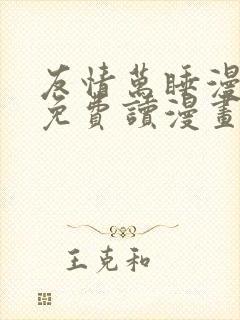 友情萬睡漫
免費讀漫畫
王克和